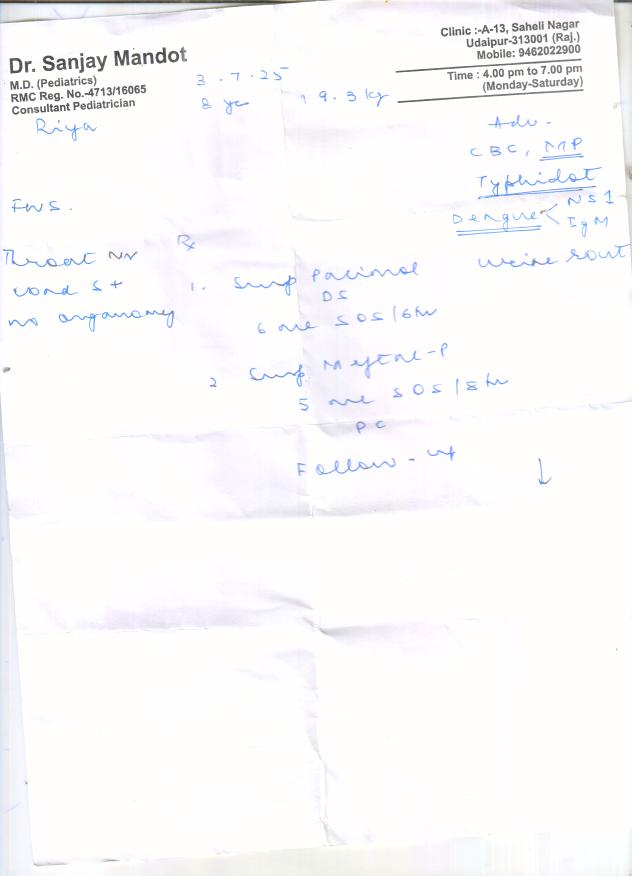 Dr. Sanjay Mandot
M.D. (Pediatrics)
RMC Reg. No.-4713/16065
Consultant Pediatrician
Clinic :-A-13, Saheli Nagar
Udaipur-313001 (Raj.)
Mobile: 9462022900
Time : 4.00 pm to 7.00 pm
(Monday-Saturday)
3.7.25
8 yr 19.3 kg
Riya
Adv.
CBC, MP
Typhidot
Dengue < NS1
IgM
Urine rout
FWS.
Throat
S+
no organomy
Rx
1. Syrup Pacimol
DS
6 ml SOS/6hr
2 Syrup Meftal-P
5 ml SOS/8hr
PC
Follow-up
↓